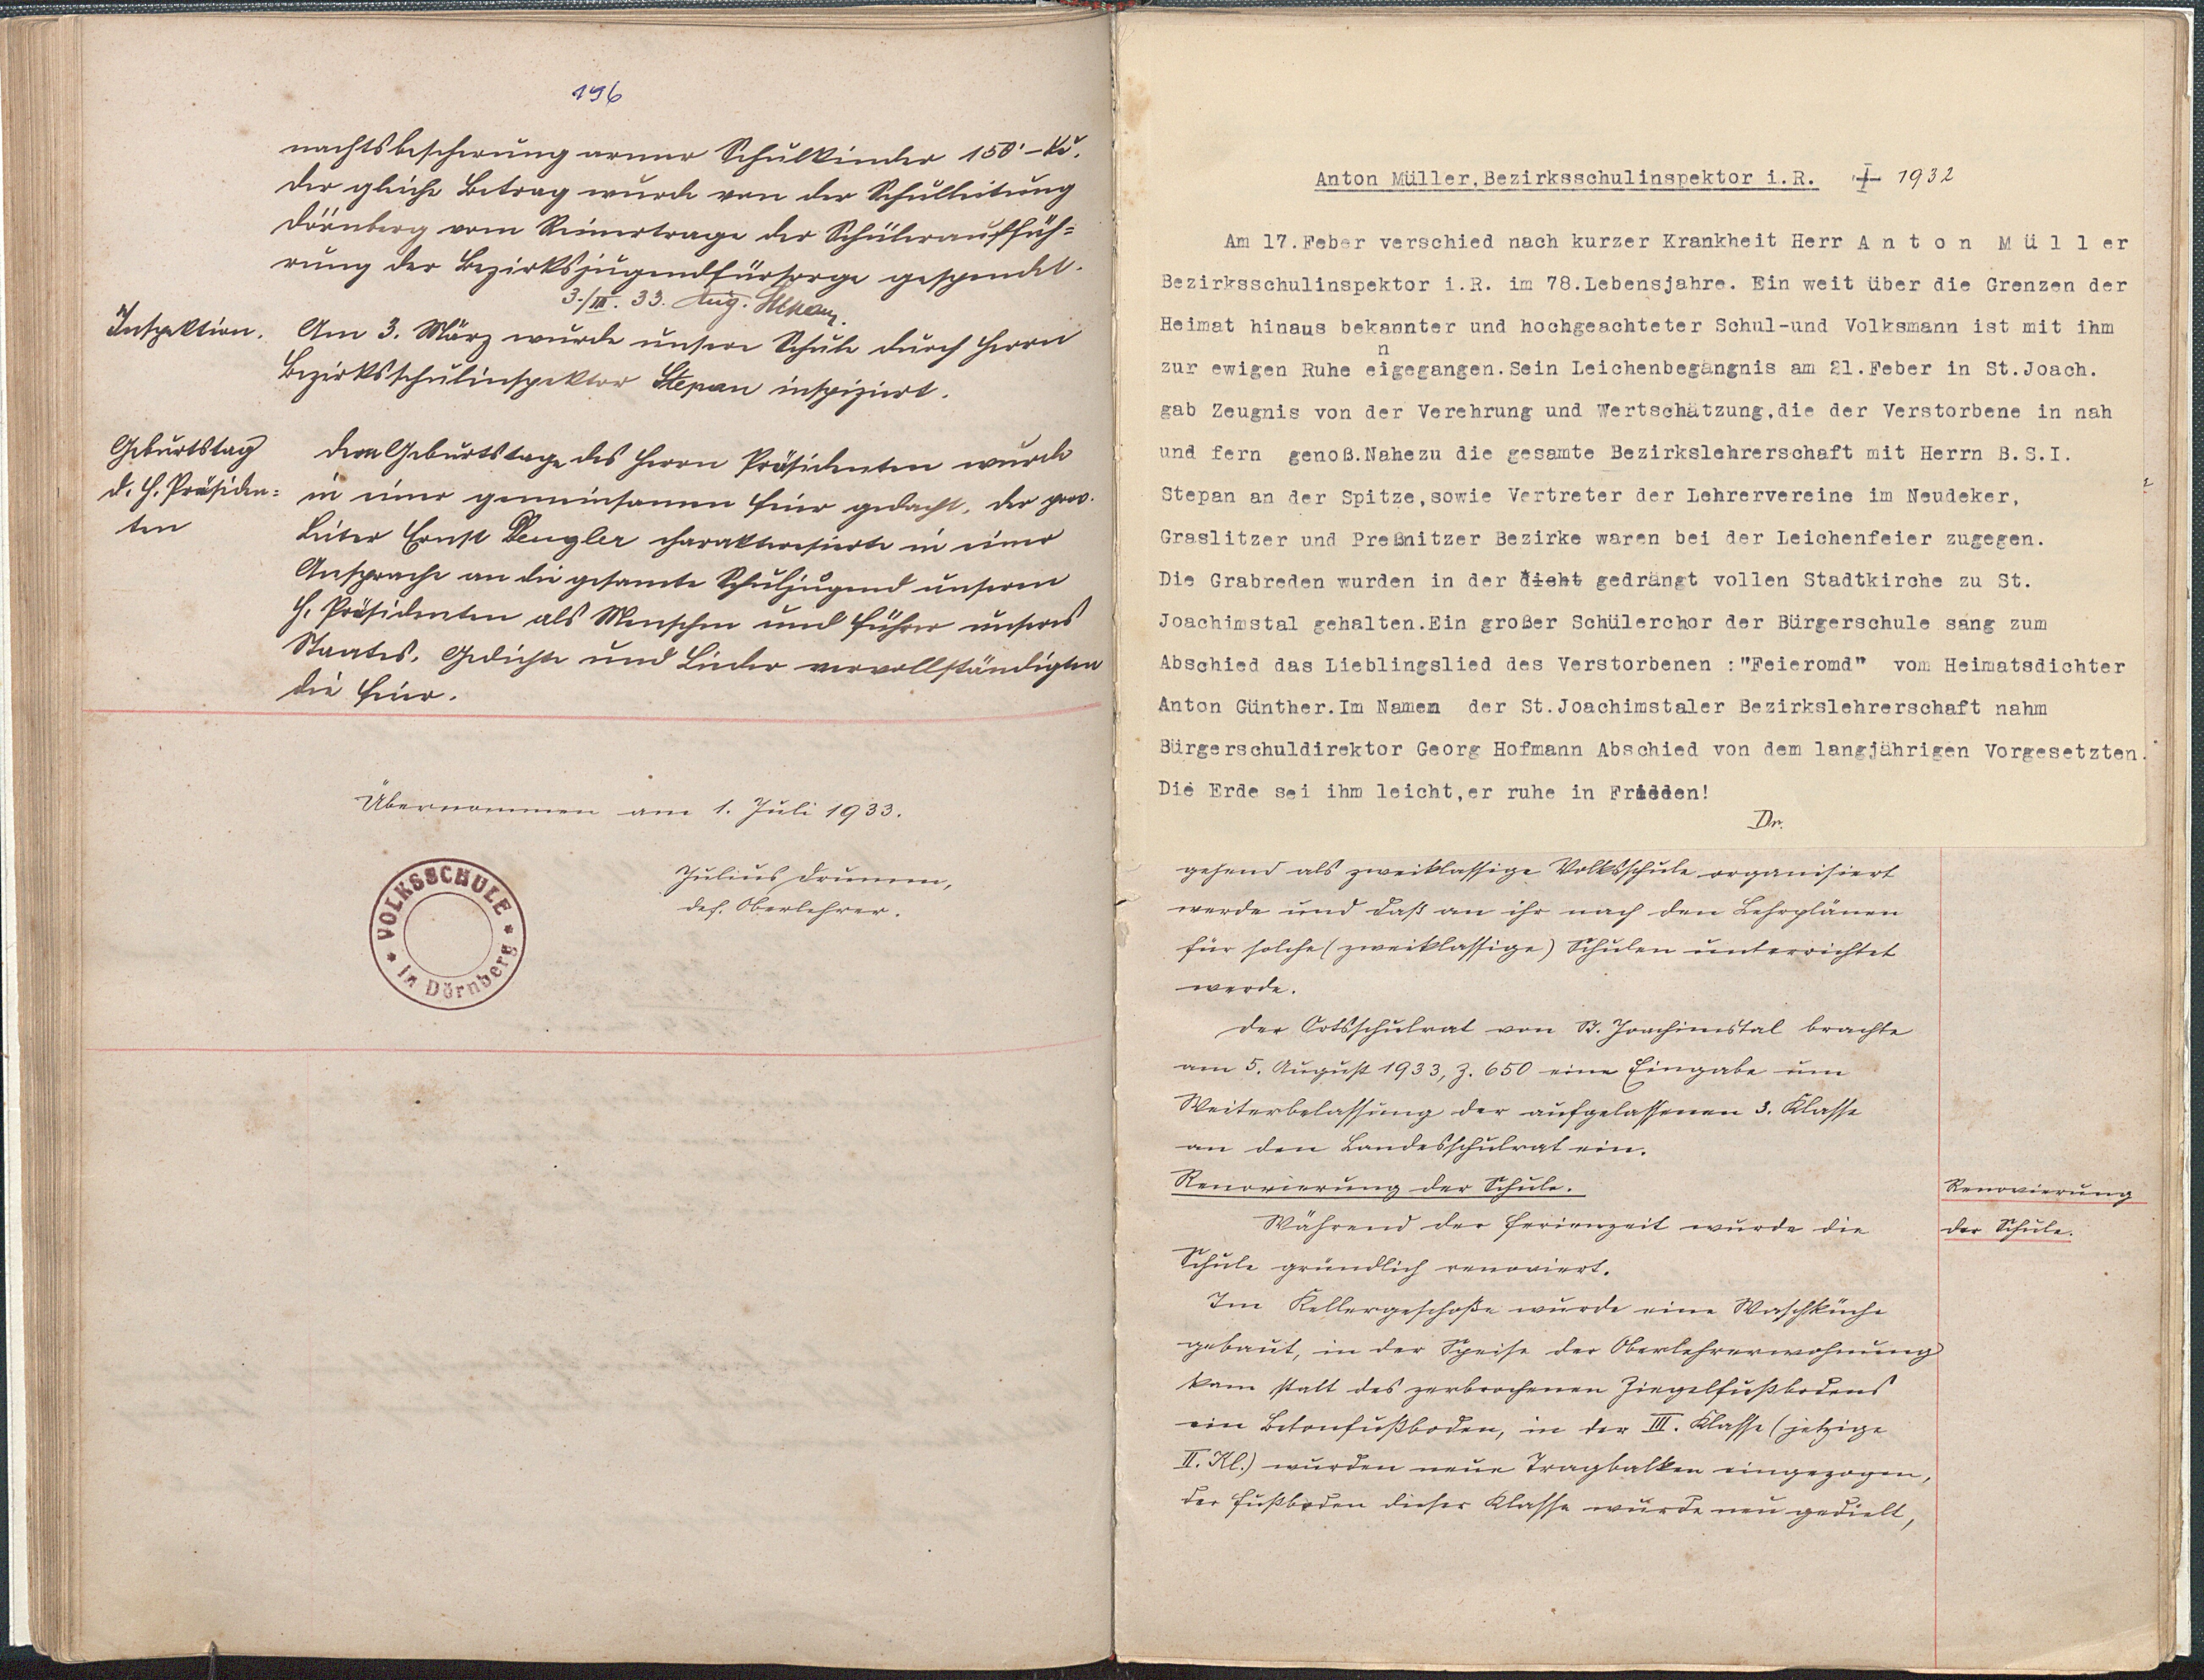 196
nachtsbescherung armer Schulkinder 150'-Kč.
Der gleiche Betrag wurde von der Schulleitung
Dörnberg vom Reinertrage der Schülerauffüh=
rung der Bezirksjugendfürsorge gespendet.
3./III. 33. Aug. Stepan
Inspektion.
Am 3. März wurde unsere Schule durch Herrn
Bezirksschulinspektor Stepan inspiziert.
Geburtstag
d. H. Präsiden=
ten
Dem Geburtstage des Herrn Präsidenten wurde
in einer gemeinsamen Feier gedacht. Der prov.
Leiter Ernst Dengler charakterisierte in einer
Ansprache an die gesamte Schuljugend unseren
H. Präsidenten als Menschen und Führer unseres
Staates. Gedichte und Lieder vervollständigten
die Feier.
Übernommen am 1. Juli 1933.
Julius Drumm,
def. Oberlehrer.
* VOLKSSCHULE * in Dörnberg
Anton Müller,Bezirksschulinspektor i.R. + 1932
Am 17.Feber verschied nach kurzer Krankheit Herr A n t o n M ü l l er
Bezirksschulinspektor i.R. im 78.Lebensjahre. Ein weit über die Grenzen der
Heimat hinaus bekannter und hochgeachteter Schul-und Volksmann ist mit ihm
n
zur ewigen Ruhe eigegangen.Sein Leichenbegängnis am 21.Feber in St.Joach.
gab Zeugnis von der Verehrung und Wertschätzung,die der Verstorbene in nah
und fern genoß.Nahezu die gesamte Bezirkslehrerschaft mit Herrn B.S.I.
Stepan an der Spitze,sowie Vertreter der Lehrervereine im Neudeker,
Graslitzer und Preßnitzer Bezirke waren bei der Leichenfeier zugegen.
Die Grabreden wurden in der dicht gedrängt vollen Stadtkirche zu St.
Joachimstal gehalten.Ein großer Schülerchor der Bürgerschule sang zum
Abschied das Lieblingslied des Verstorbenen :"Feieromd" vom Heimatsdichter
Anton Günther.Im Namen der St.Joachimstaler Bezirkslehrerschaft nahm
Bürgerschuldirektor Georg Hofmann Abschied von dem langjährigen Vorgesetzten.
Die Erde sei ihm leicht,er ruhe in Frieden!
Dr.
gehend als zweiklassige Volksschule organisiert
werde und daß an ihr nach den Lehrplänen
für solche (zweiklassige) Schulen unterrichtet
werde.
Der Ortsschulrat von St. Joachimstal brachte
am 5. August 1933, Z. 650 eine Eingabe um
Weiterbelassung der aufgelassenen 3. Klasse
an den Landesschulrat ein.
Renovierung der Schule.
Renovierung
der Schule.
Während der Ferienzeit wurde die
Schule gründlich renoviert.
Im Kellergeschoße wurde eine Waschküche
gebaut, in der Speise der Oberlehrerwohnung
kam statt des zerbrochenen Ziegelfußbodens
ein Betonfußboden, in der III. Klasse (jetzige
II. Kl.) wurden neue Tragbalken eingezogen,
der Fußboden dieser Klasse wurde neu gedielt,